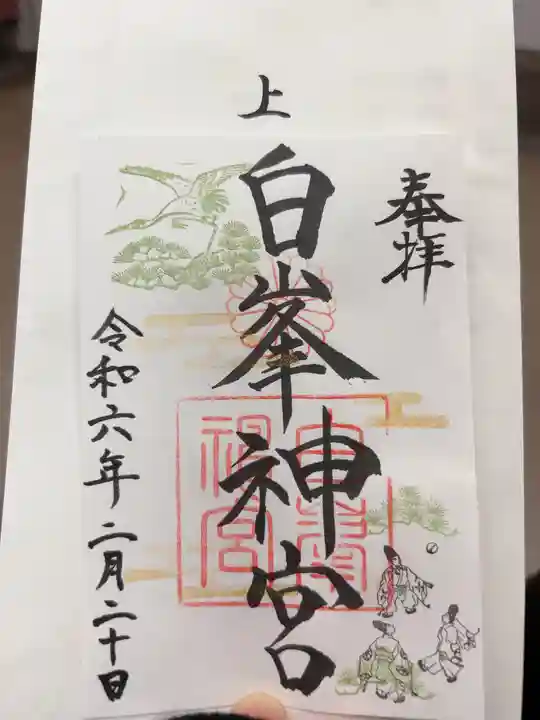 奉拝
上
白峯神宮
白峯神宮
令和六年二月二十日